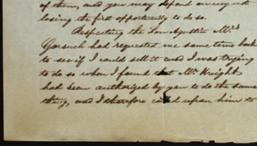 of them, and you may depend on my not
losing the first opportunity to do so.
Respecting the Mr.
Gorsuch had requested me some time back
to see if I could sell it and I was trying
to do so when I found that Mr Knight
had been authorized by you to do the same
thing, and I therefore called upon him to